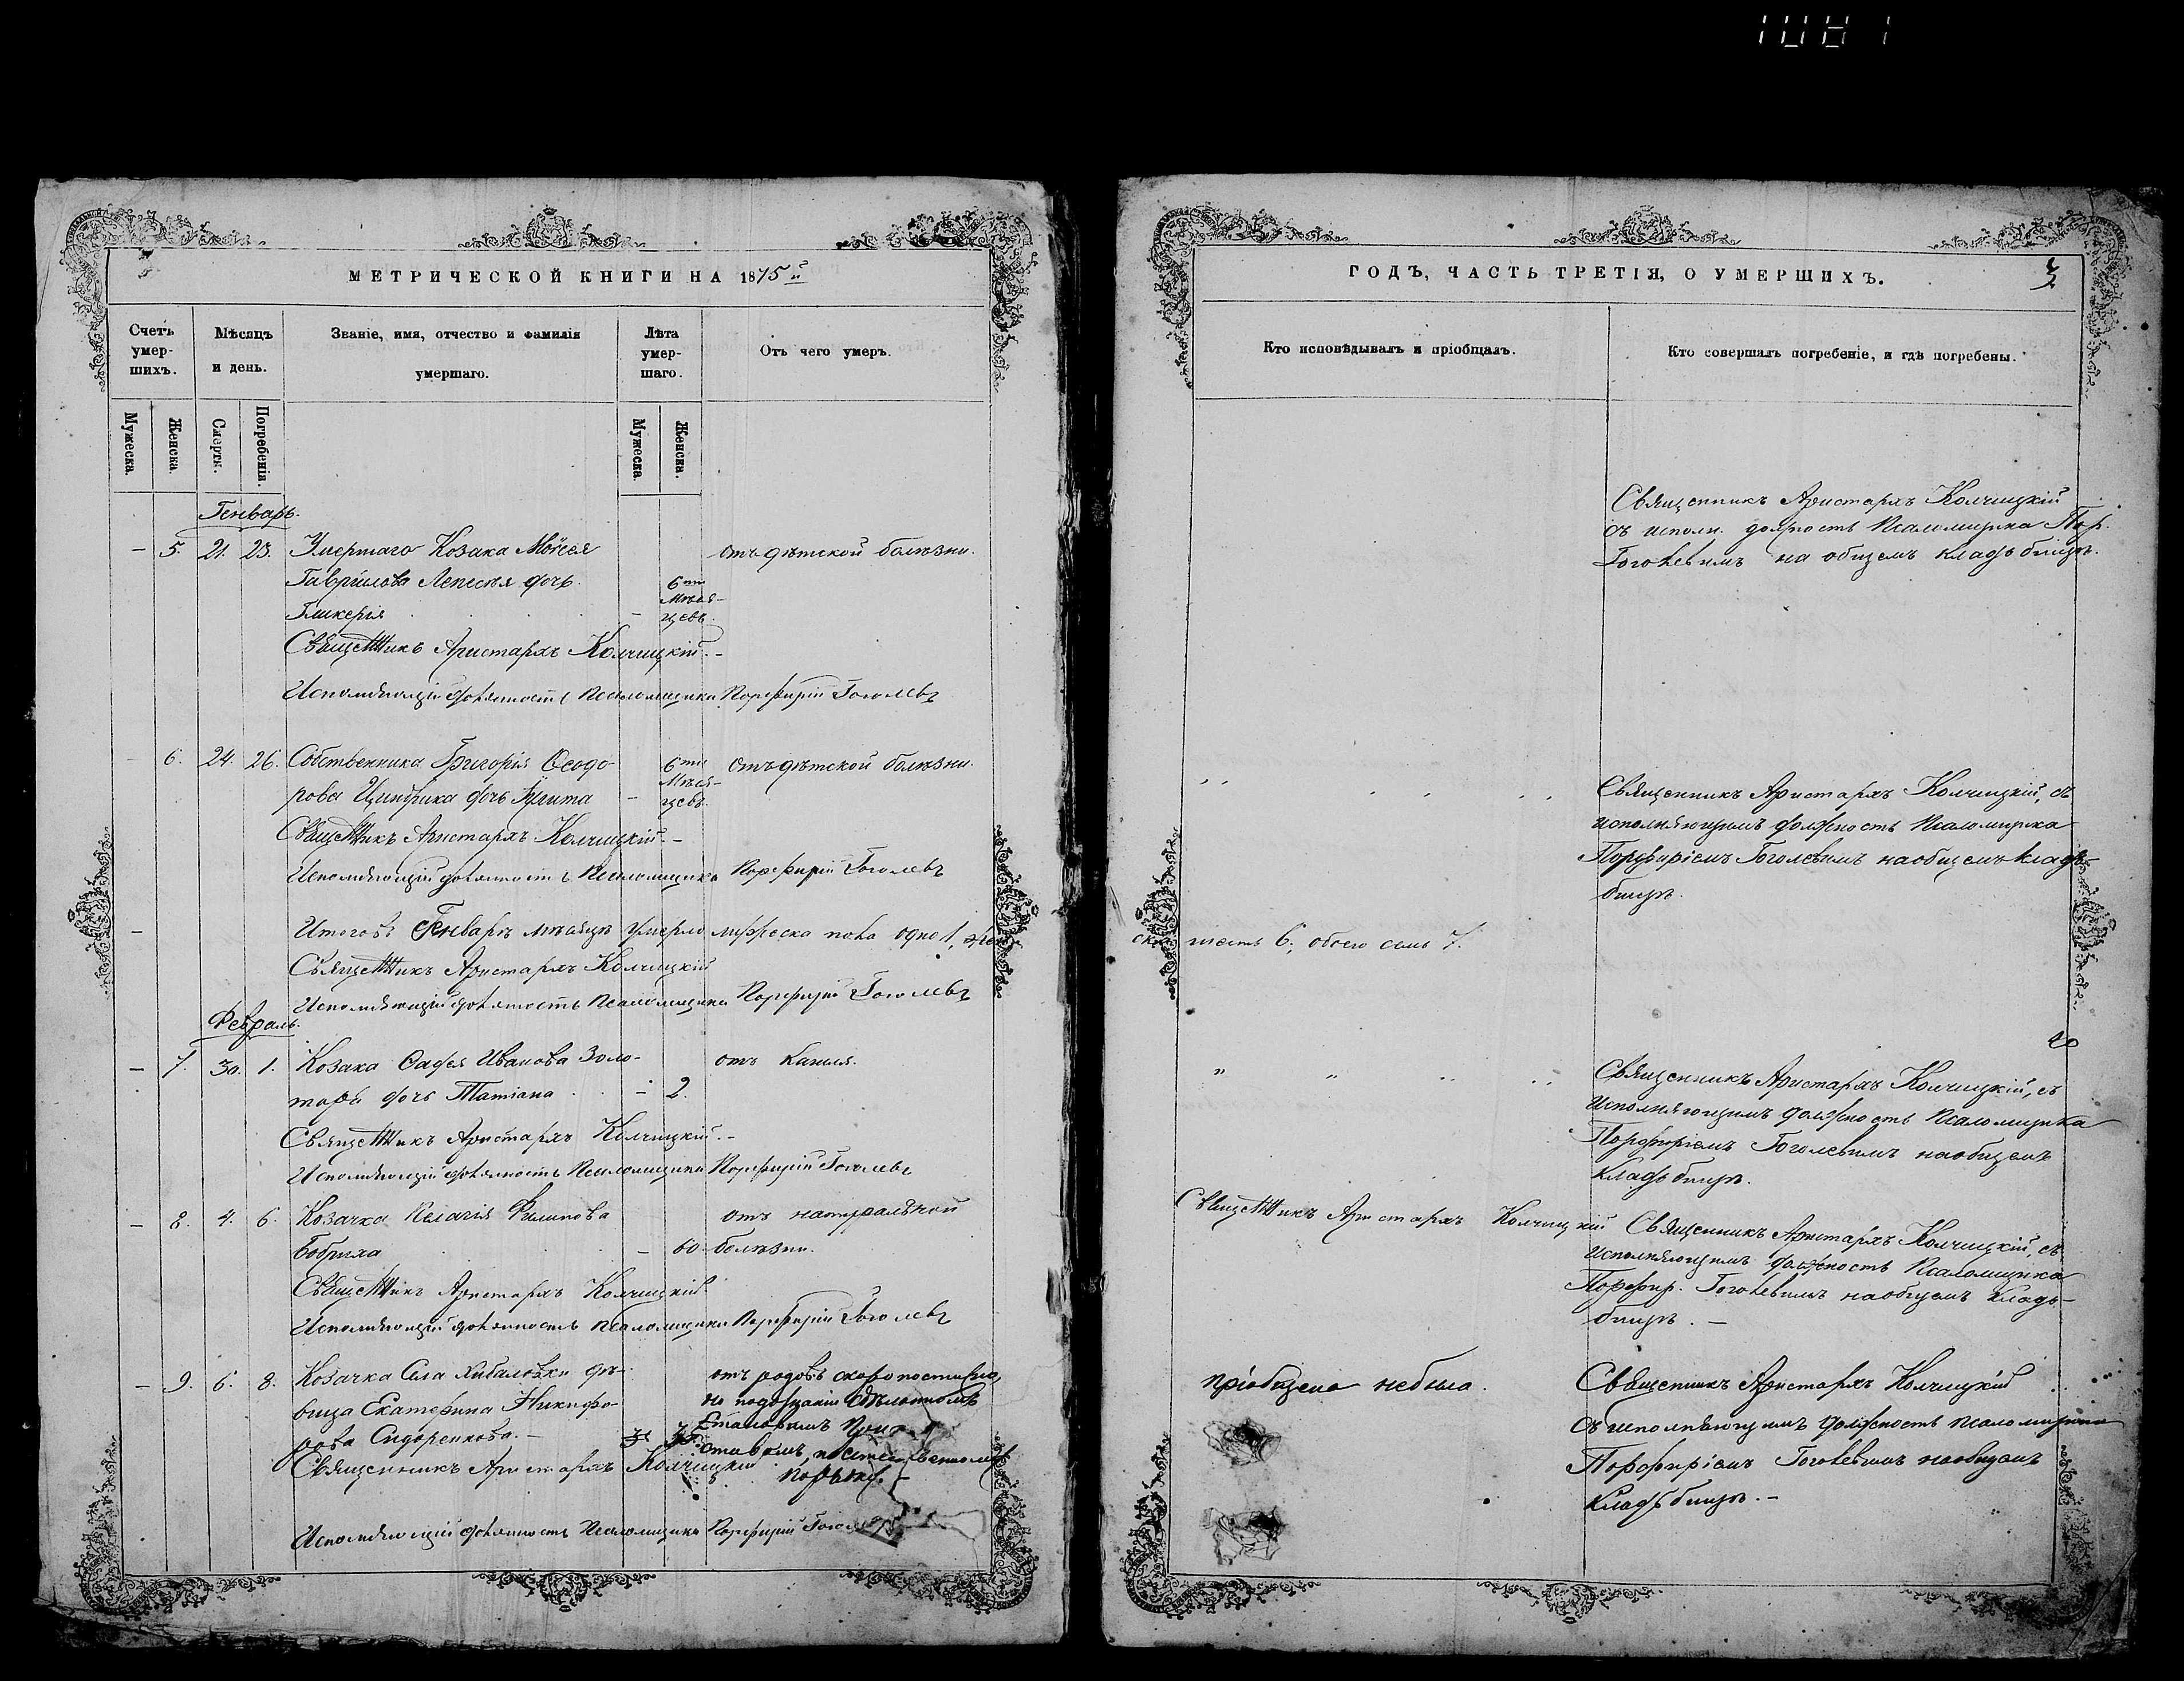 1081
МЕТРИЧЕСКОЙ КНИГИ НА 1875й
Счетъ умер-шихъ.
Мѣсяцъ и день.
Званіе, имя, отчество и фамилія умершаго.
Лѣта умер-шаго.
Отъ чего умеръ.
Мужеска.
Женска.
Смерти.
Погребенія.
Мужеска
Женска.
Генварь.
– 5. 21. 23. Умершаго Козака Моѵсея отъ дѣтской болѣзни.
Гаврилова дочь 6ти
Гликерія – Мѣся-
цевъ.
Священникъ Аристархъ Колчицкій. –
Исполняющій должность Псаломщика Порфирій Гоголевъ
– 6. 24. 26. Собственника Григорія Ѳеодо- 6ти отъ дѣтской болѣзни.
рова дочь – Мѣся-
цевъ.
Священникъ Аристархъ Колчицкій. –
Исполняющій должность Псаломщика Порфирій Гоголевъ
– Итого въ Генварѣ мѣсяцѣ умерло мужеска пола одно 1, жен
Священникъ Аристархъ Колчицкій
Исполняющій должность Псаломщика Порфирій Гоголевъ
Февраль.
– 7. 30. 1. Козака Ѳадея Иванова Золо- отъ кашля.
таря дочь Татіана – 2.
Священникъ Аристархъ Колчицкій. –
Исполняющій должность Псаломщика Порфирій Гоголевъ
– 8. 4. 6. Козачка Пелагія Филипова отъ натуральной
Бобриха – 60. болѣзни.
Священникъ Аристархъ Колчицкій.
Исполняющій должность Псаломщика Порфирій Гоголевъ
– 9. 6. 8. Козачка Села дѣ- отъ родовъ скоропостижно
вица Екатерина Никифо- по
рова Сидоренкова. – Становымъ При-
ставомъ,
Священникъ Аристархъ Колчицкій
Исполняющій должность Псаломщика Порфирій
ГОДЪ, ЧАСТЬ ТРЕТІЯ, О УМЕРШИХЪ.
Кто исповѣдывалъ и пріобщалъ.
Кто совершалъ погребеніе, и гдѣ погребены.
Священникъ Аристархъ Колчицкій
съ исполн. должность Псаломщика Пор.
Гоголевымъ на общемъ кладъбищѣ.
Священникъ Аристархъ Колчицкій, съ
исполняющимъ должность Псаломщика
Порфиріемъ Гоголевымъ на общемъ кладъ-
бищѣ.
ска шесть 6., обоего семь 7.
Священникъ Аристархъ Колчицкій, съ
исполняющимъ должность Псаломщика
Порфиріемъ Гоголевымъ на общемъ
кладъбищѣ.
Священникъ Аристархъ Колчицкій
Священникъ Аристархъ Колчицкій, съ
исполняющимъ должность Псаломщика
Порфир. Гоголевымъ на общемъ кладъ-
бищѣ. –
пріобщена небыла.
Священникъ Аристархъ Колчицкій
съ исполняющимъ должность псаломщика
Порфиріемъ Гоголевымъ на общемъ
кладъбищѣ. –